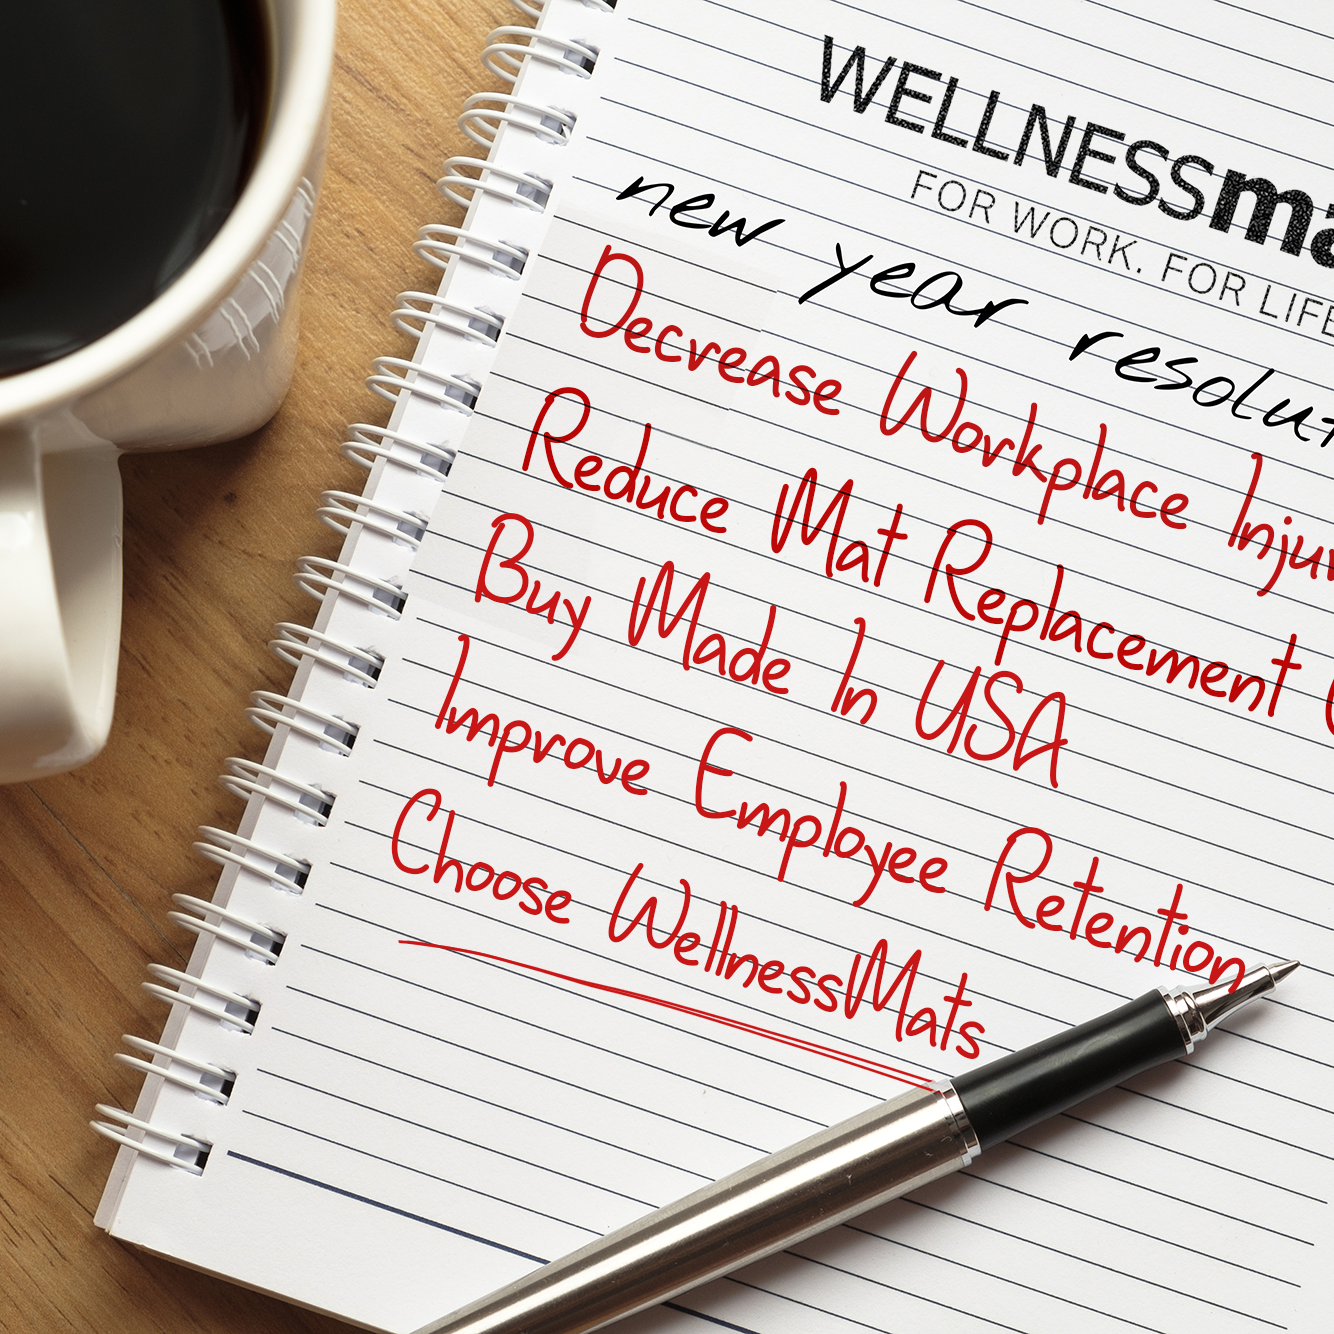 WELLNESSma
FOR WORK. FOR LIFE
new year resolut
Decrease Workplace Injur
Reduce Mat Replacement
Buy Made In USA
Improve Employee Retention
Choose WellnessMats